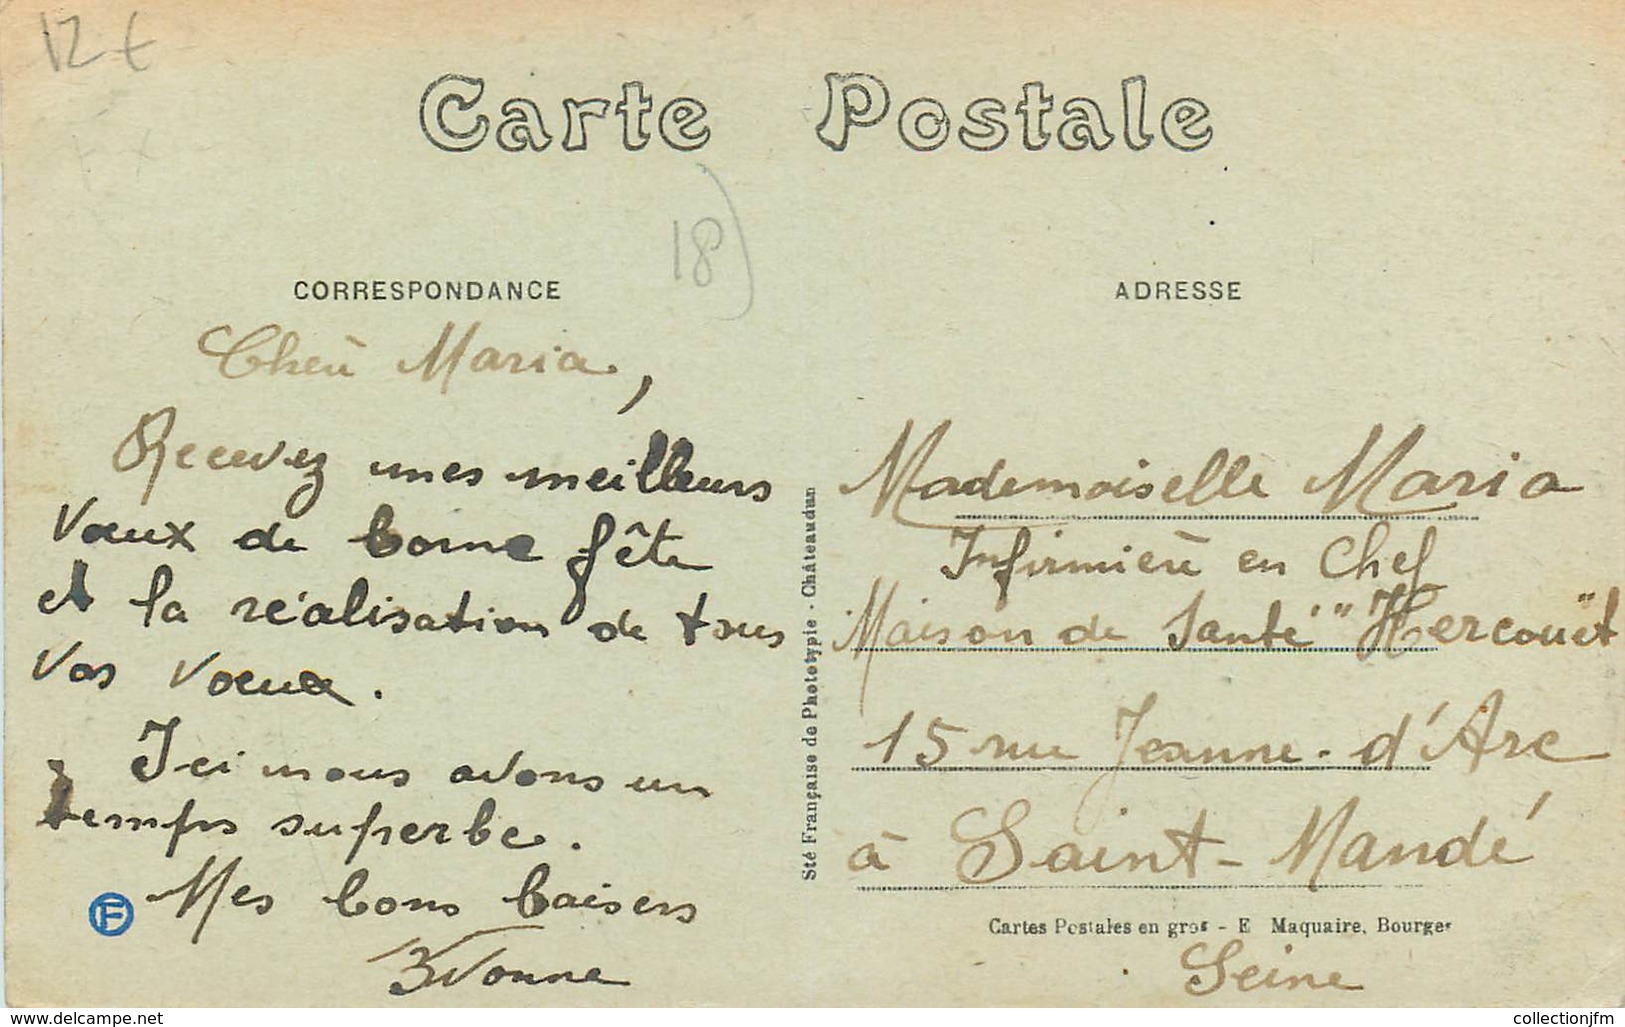 12 €
Carte Postale
18)
CORRESPONDANCE
Chère Maria,
Recevez mes meilleurs
vœux de bonne fête
et la réalisation de tous
vos vœux.
Ici nous avons un
temps superbe.
Mes bons baisers
Yvonne
Sté Française de Phototypie - Châteaudun
ADRESSE
Mademoiselle Maria
Infirmière en Chef
Maison de Santé "Hercouët"
15 rue Jeanne-d'Arc
à Saint-Mandé
Cartes Postales en gros - E Maquaire, Bourges
Seine
www.delcampe.net
collectionjfm